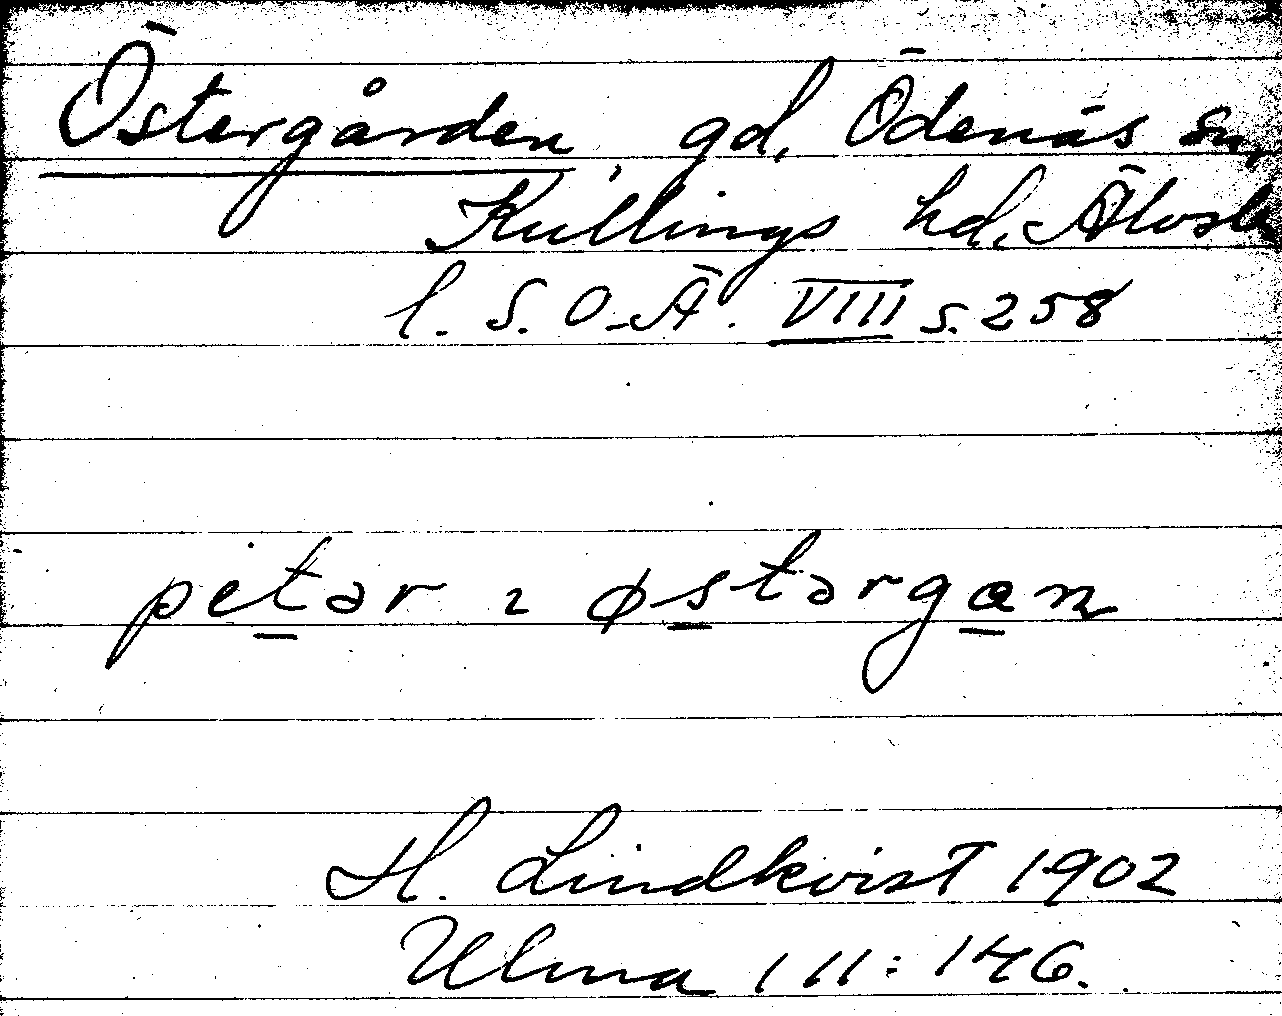 Östergården, gd, Ödenäs sn,
Kullings hd, Älvsb
l. S. O. Ä. VIII s. 258
petər ɩ østərgan
H. Lindkvist 1902
Ulma 111: 146.